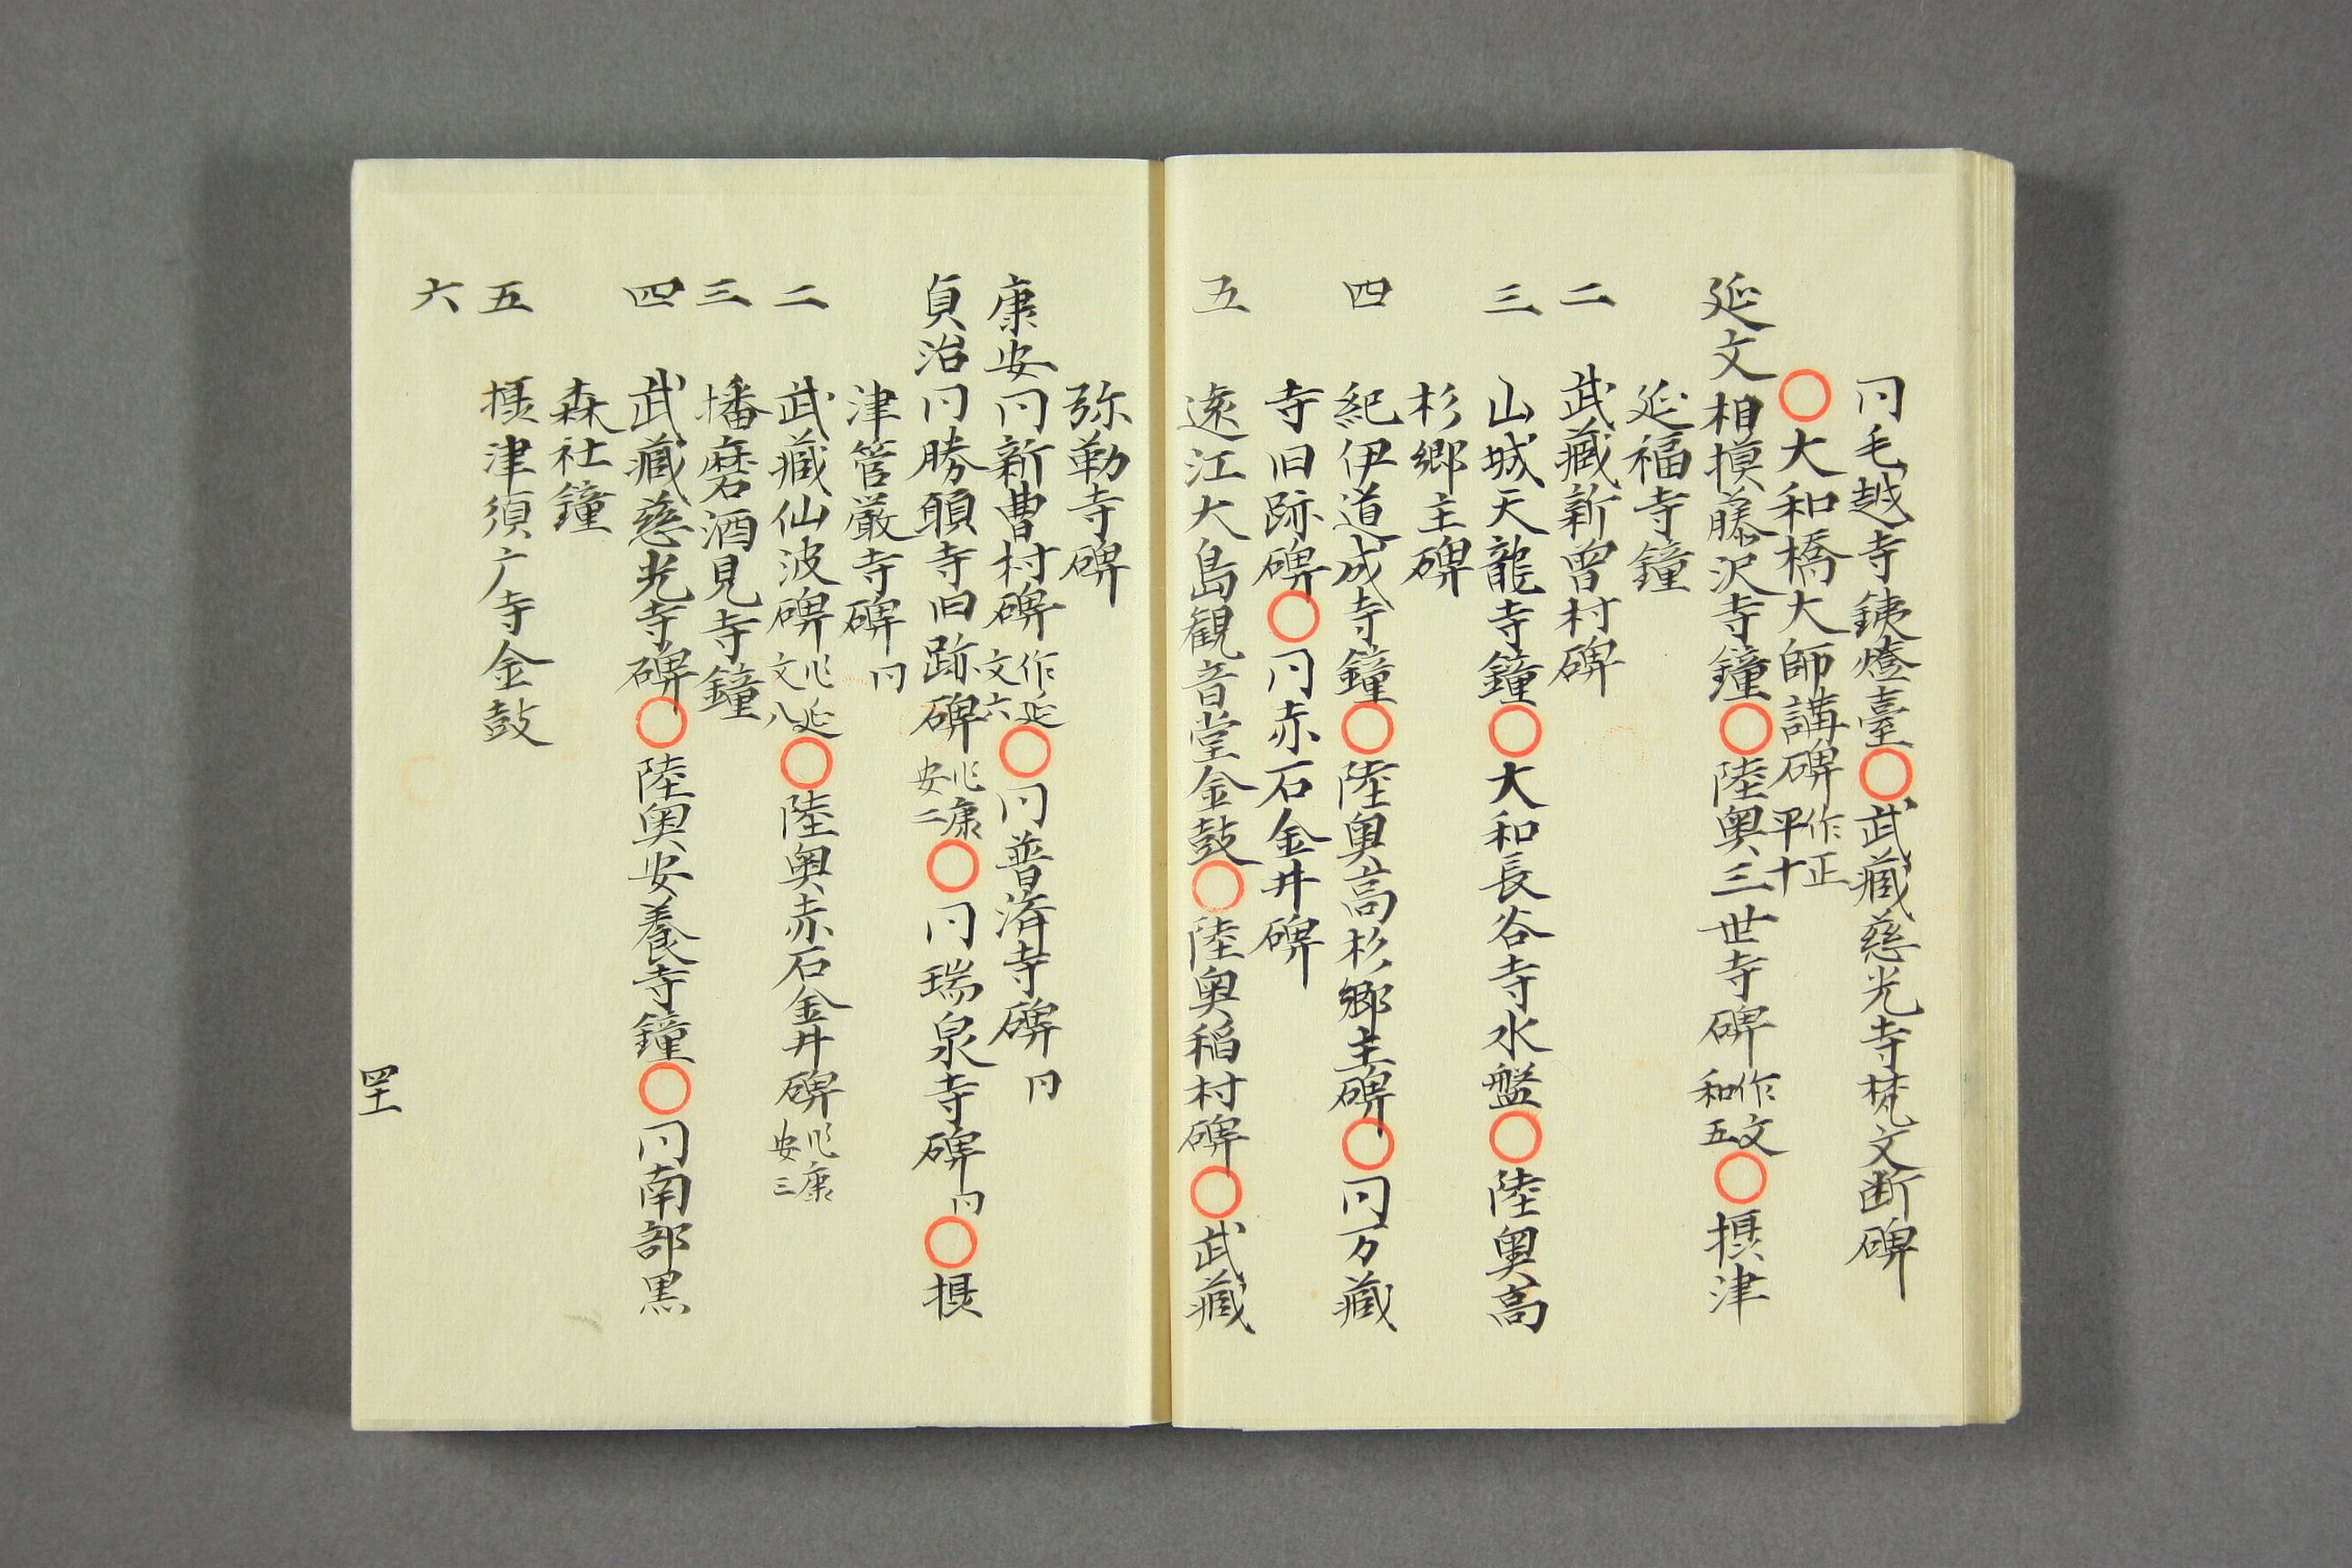 同毛越寺銕燈臺〇武藏慈光寺梵文断碑
〇大和橋大師講碑作正平十
延文 相摸藤沢寺鐘〇陸奥三世寺碑作文和五〇摂津
延福寺鐘
二 武藏新曽村碑
三 山城天龍寺鐘〇大和長谷寺水盤〇陸奥高
杉郷主碑
四 紀伊道成寺鐘〇陸奥高杉郷主碑〇同万藏
寺旧跡碑〇同赤石金井碑
五 遠江大島観音堂金鼓〇陸奥稲村碑〇武藏
弥勒寺碑
康安 同新曹村碑作延文六〇同普済寺碑同
貞治 同勝願寺旧跡碑作康安二〇同瑞泉寺碑同〇摂
津菅厳寺碑同
二 武藏仙波碑作延文八〇陸奥赤石金井碑作康安三
三 播磨酒見寺鐘
四 武藏慈光寺碑〇陸奥安養寺鐘〇同南部黒
森社鐘
五 摂津須广寺金鼓
六
四十一